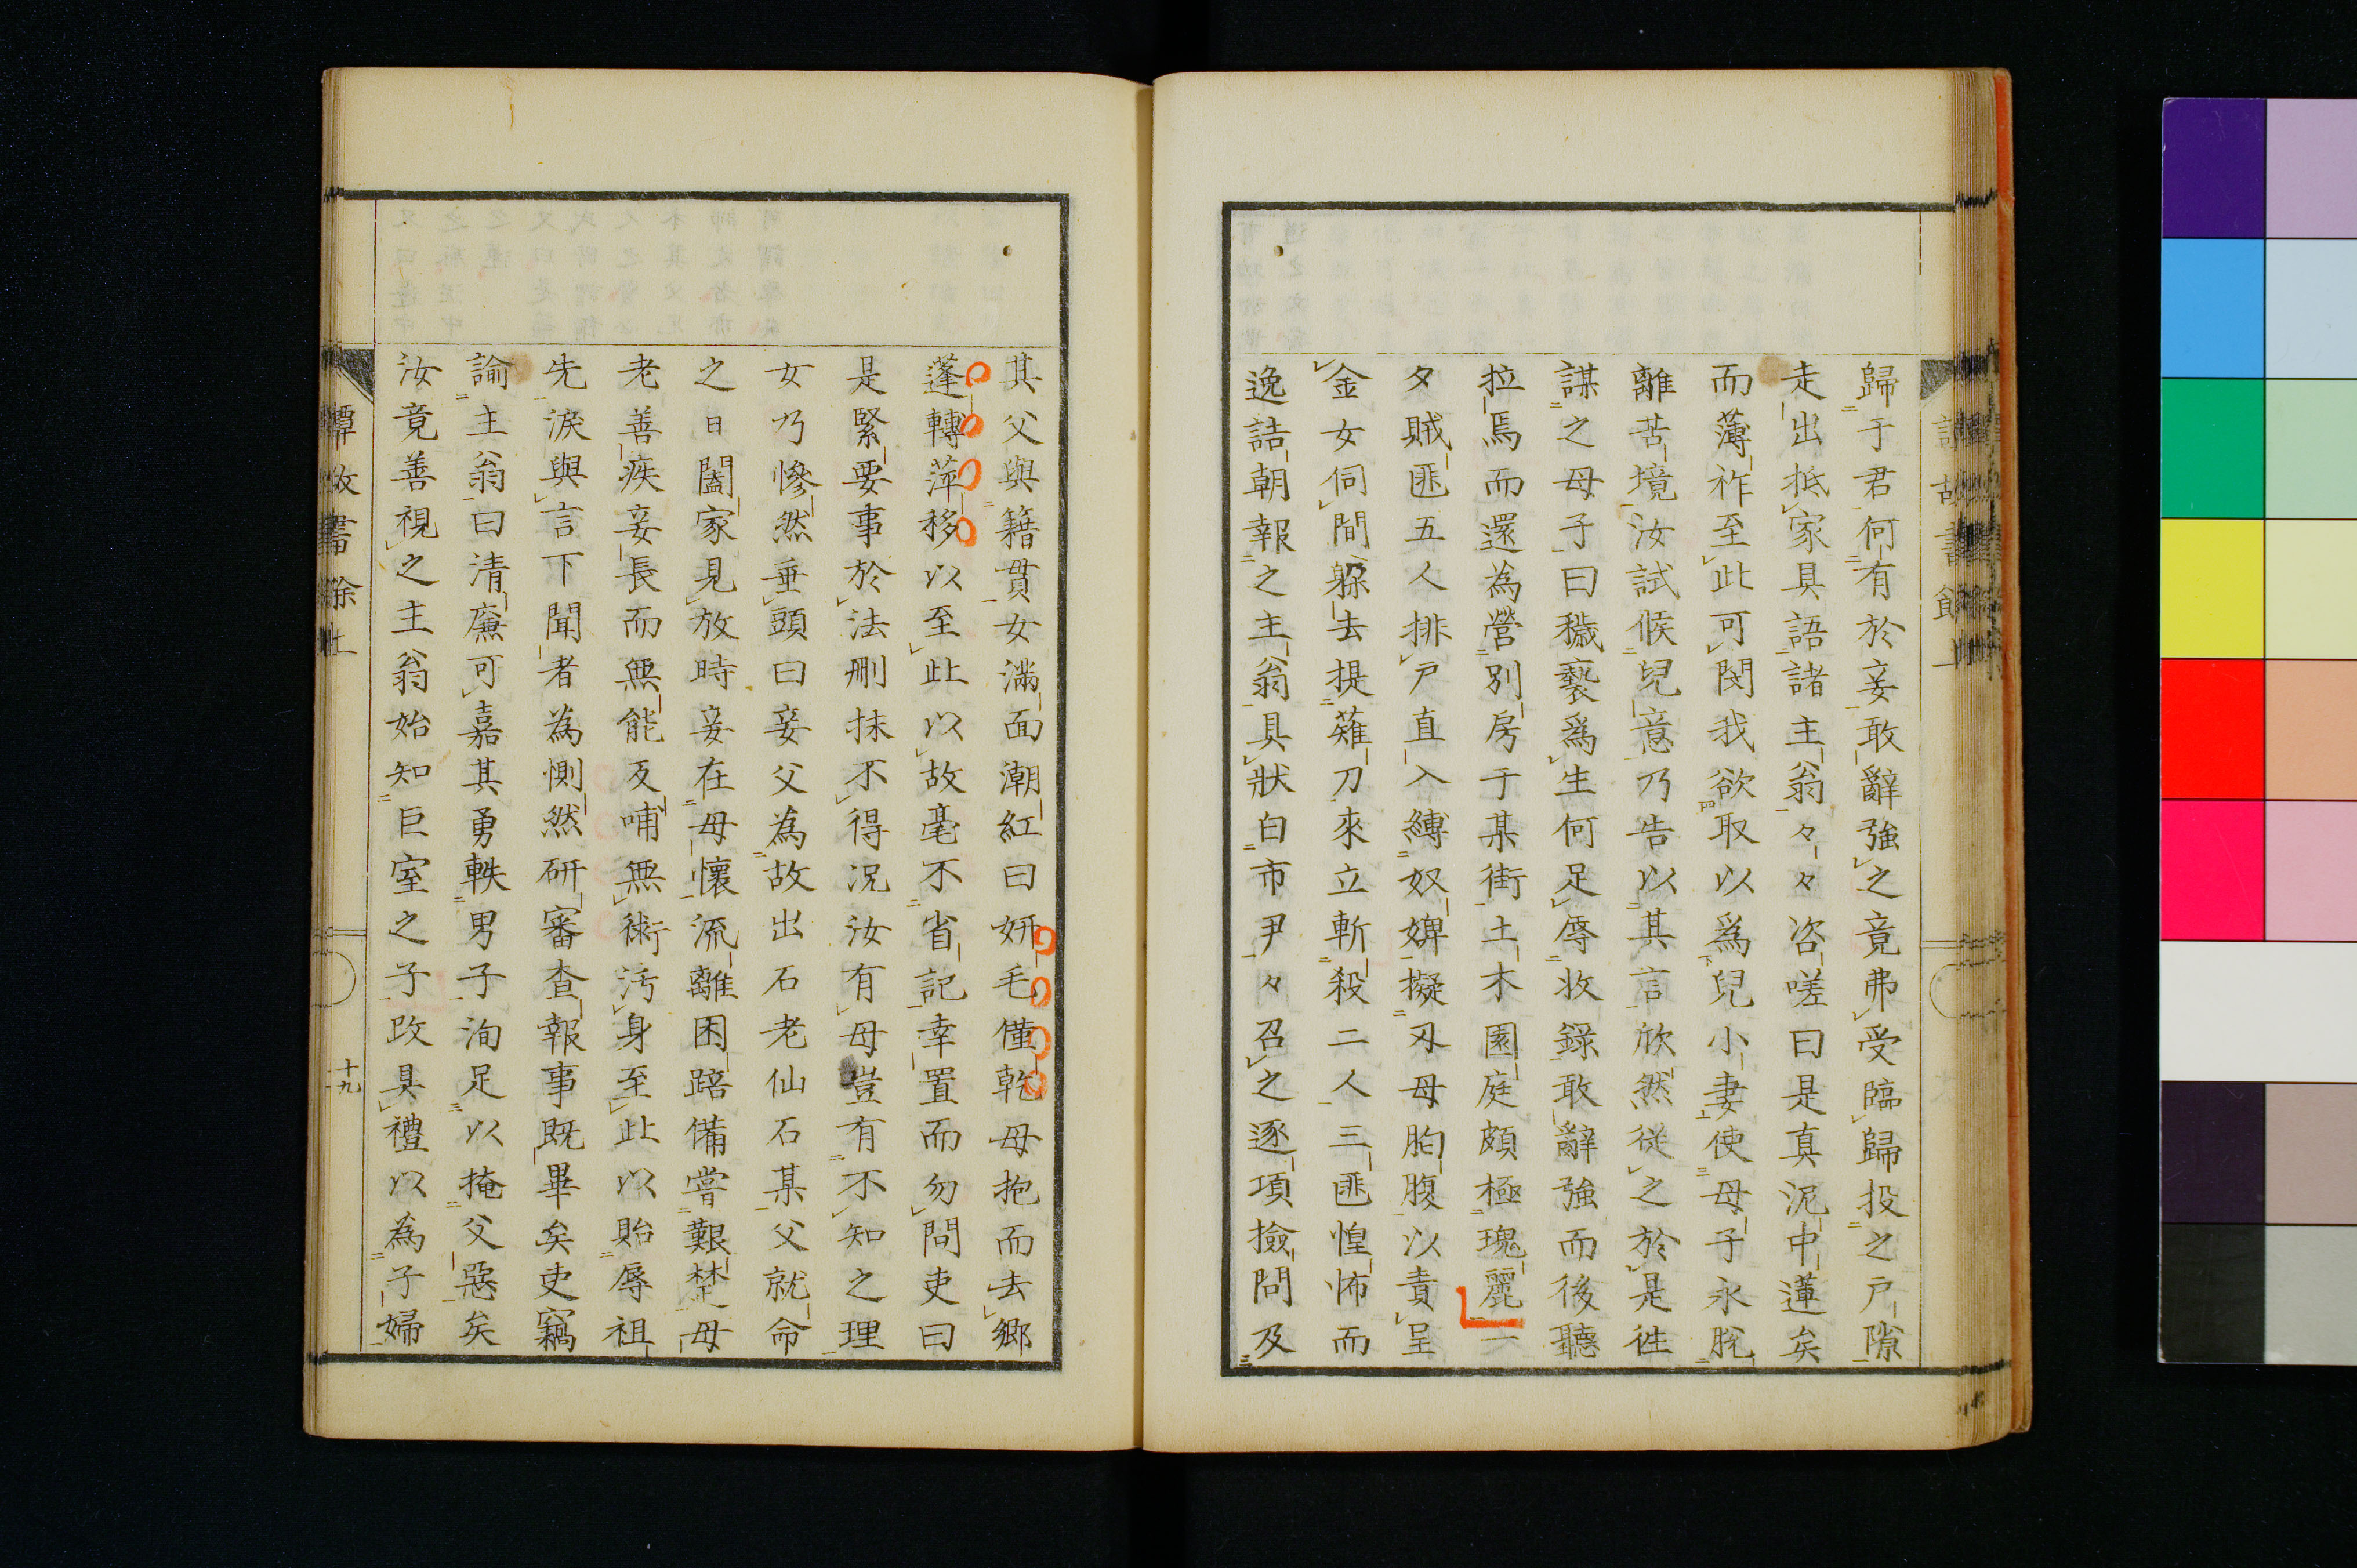 歸于君何有於妾敢辭強之竟弗受臨歸投之戸隙
走出抵家具語諸主翁々々咨嗟曰是真泥中蓮矣
而薄祚至此可閔我欲取以爲兒小妻使母子永脫
離苦境汝試候兒意乃告以其言欣然従之於是徃
謀之母子曰穢褻爲生何足辱收錄敢辭強而後聽
拉焉而還為營別房于某街土木園庭頗極瑰麗一
夕賊匪五人排戸直入縛奴婢擬刃母胸腹以責呈
金女伺間躱去提薙刀來立斬殺二人三匪惶怖而
逸詰朝報之主翁具狀白市尹々召之逐項撿問及
其父與籍貫女滿面潮紅曰妍毛僅乾母抱而去郷
蓬轉萍移以至此以故毫不省記幸置而勿問吏曰
是緊要事於法刪抹不得況汝有母豈有不知之理
女乃慘然垂頭曰妾父為故出石老仙石某父就命
之日闔家見放時妾在母懷流離困踣備嘗艱楚母
老善疾妾長而無能反哺無術汚身至此以貽辱祖
先淚與言下聞者為惻然研審查報事既畢矣吏竊
諭主翁曰清廉可嘉其勇軼男子洵足以掩父惡矣
汝竟善視之主翁始知巨室之子改具禮以為子婦
十九